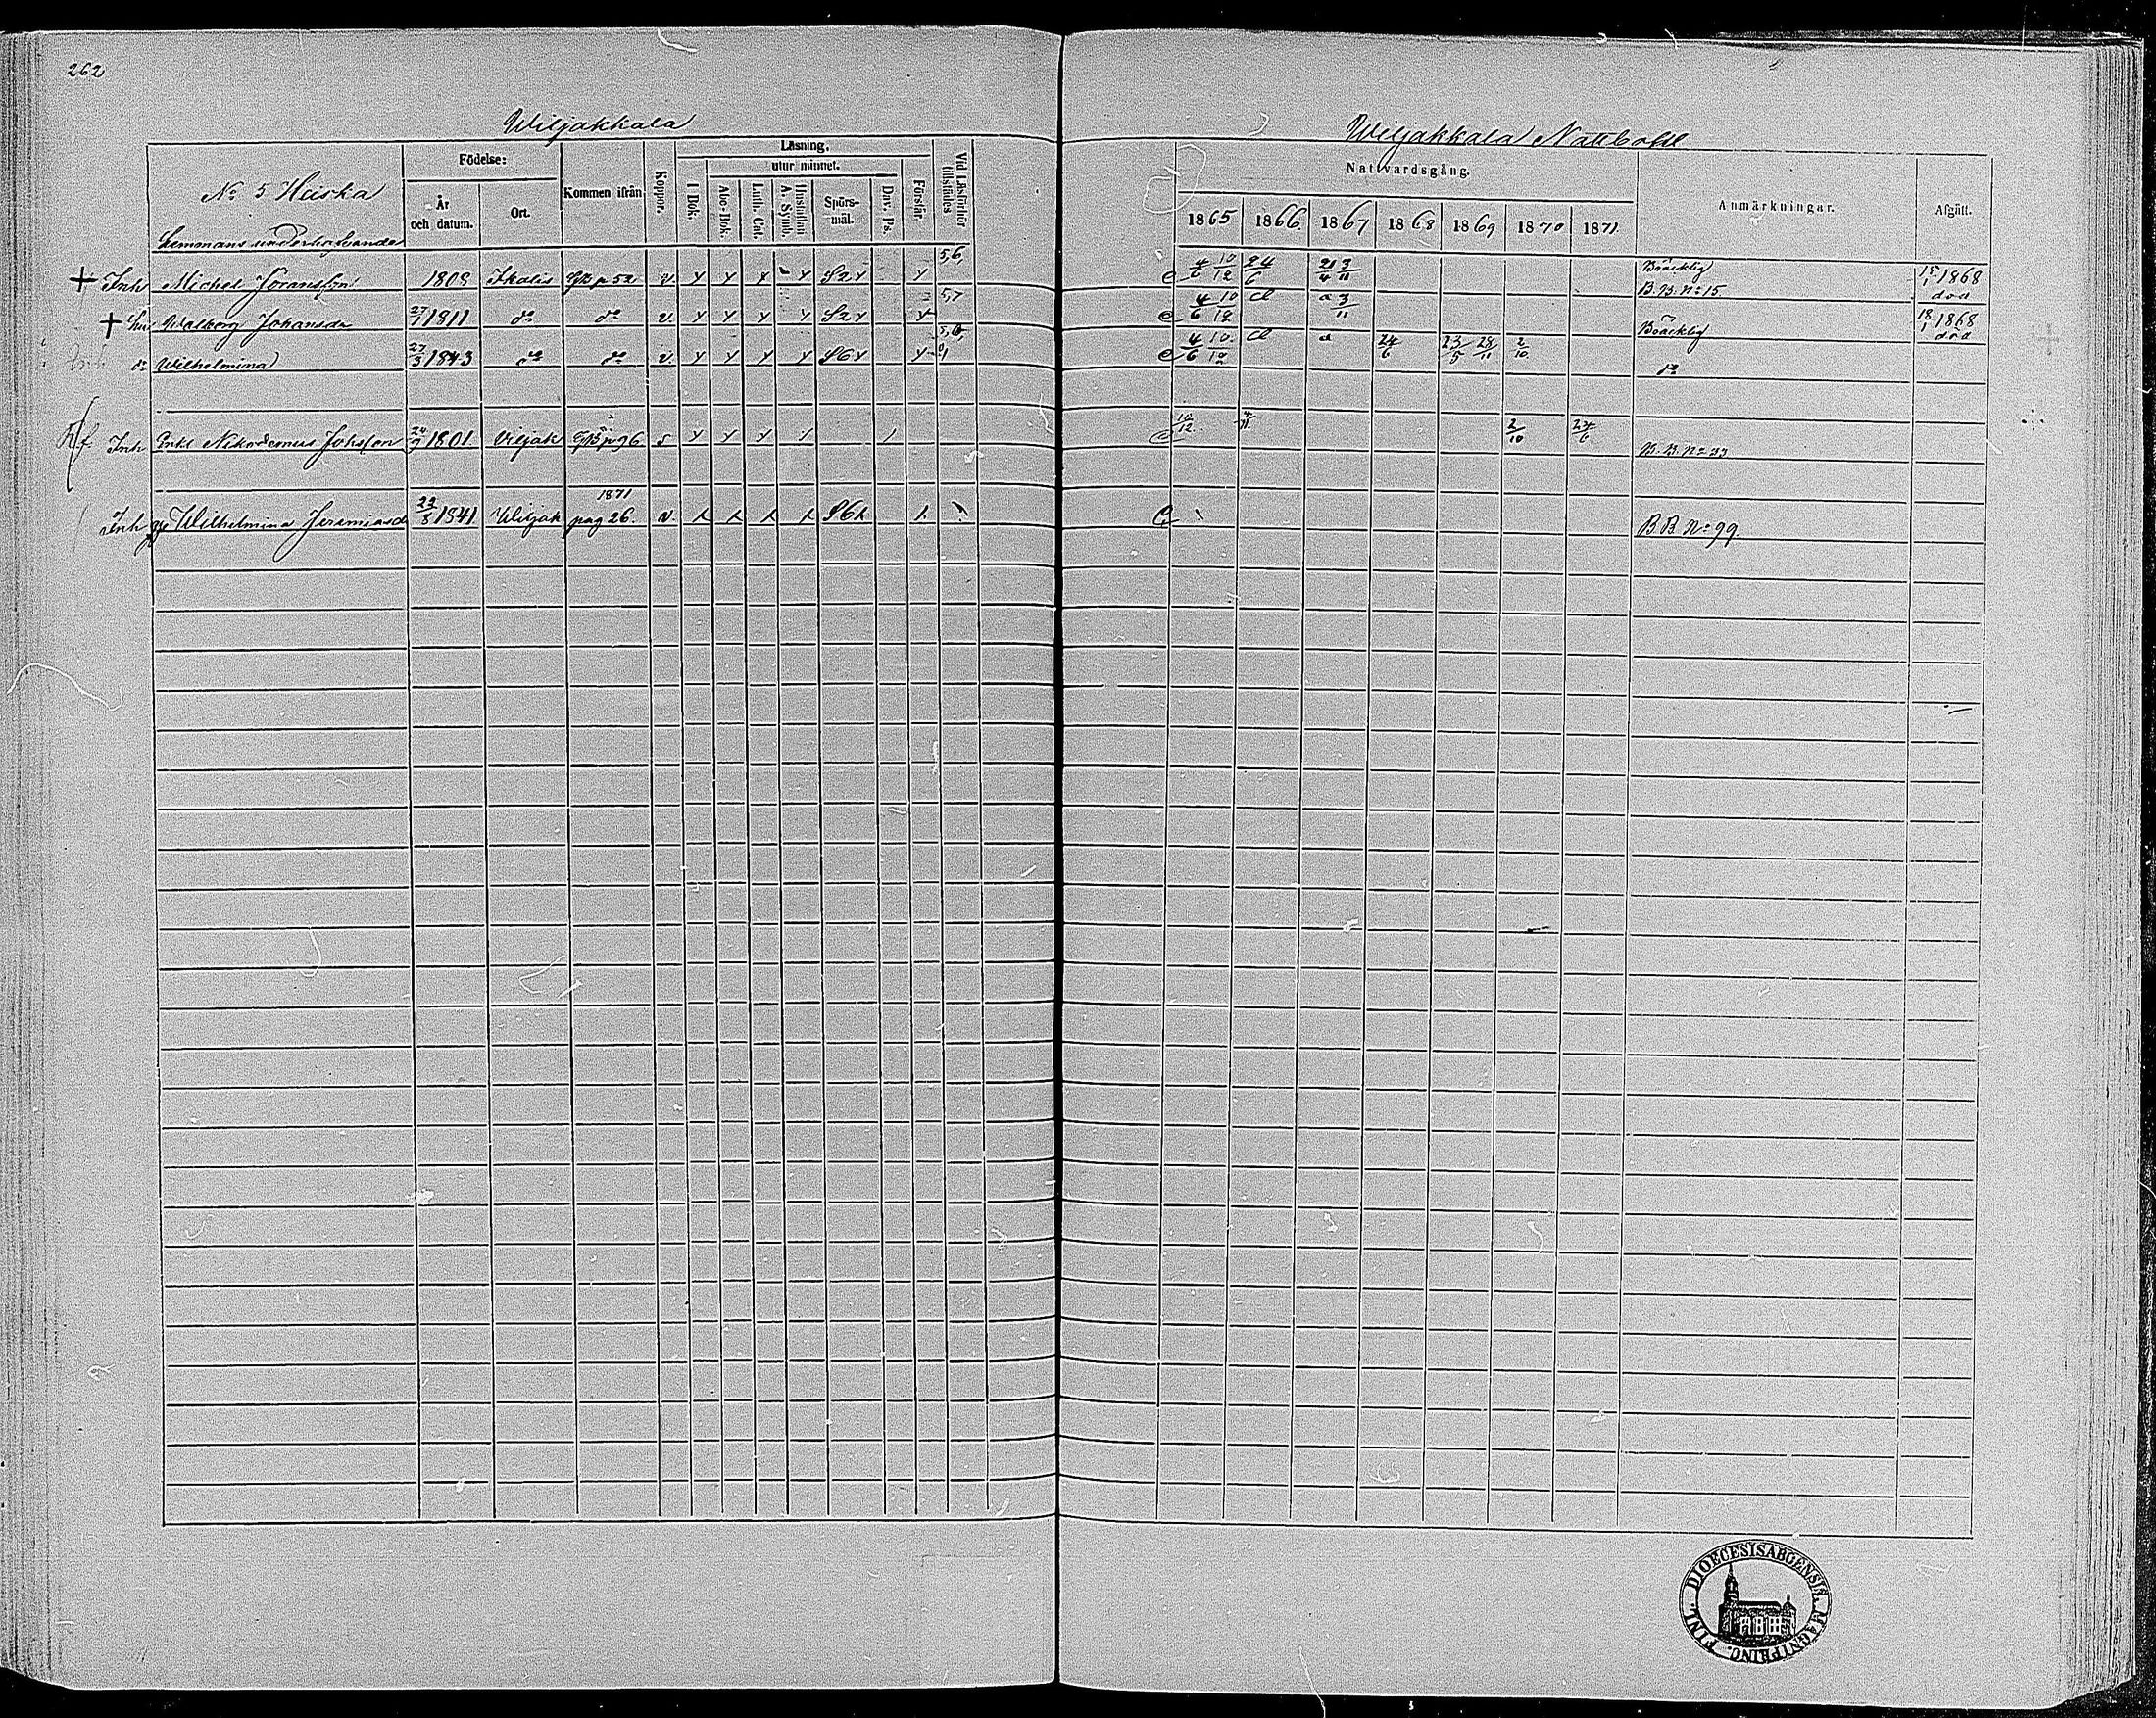 262
Wiljakkala
No 5 Huska
Födelse:
År och datum.
Ort.
Kommen ifrån
Koppor.
Läsning.
I Bok.
utur minnet.
Abc-Bok.
Luth. Cat.
Hustaflan A. Symb.
Spörsmål.
Dav. Ps.
Förstår.
Vid Läsförhör tillstädes
Wiljakkala Nattbohl
Nattvardsgång.
1865 1866 1867 1868 1869 1870 1871
Anmärkningar.
Afgått.
Lemmans underhafvande
Inh Michel Göransson 1808 Ikalis p 52 v. 5,6 4/6 10/12 24/6 21/4 3/11 Bräcklig B. B. No 15. 15/1 1868 död
hu Walborg Johansdr 27/1 1811 do do v. 5,7 4/6 10/12 3/11 Bräcklig 18/1 1868 död
dr Wilhelmina 27/3 1843 do do v. 4/6 10/12 24/6 23/5 28/11 2/10 do
Inh Enkl Nikodemus Johsson 1801 Viljak p 96 10/12 2/10 24/6 B. B. No 33
1871
Inh Wilhelmina Jeremiasd 1841 Wiljak pag 26. v. B B No 99.
DIOECESIS ABOENSIS. MAGNI PRINC. FINL.